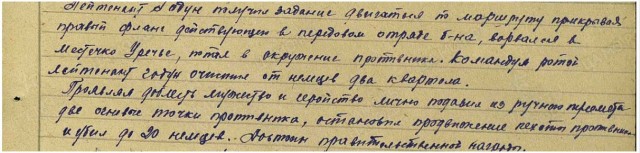 Лейтенант Годун получил задание двигаться по маршруту прикрывая
правый фланг действующий в передовом отряде б-на, ворвался в
местечко Уречье, попал в окружение противника. Командуя ротой
лейтенант Годун очистил от немцев два квартала.
Проявляя доблесть мужество и геройство лично подавил из ручного пулемета
две огневые точки противника, остановил продвижение пехоты противника
и убил до 20 немцев. Достоин правительственной награды.